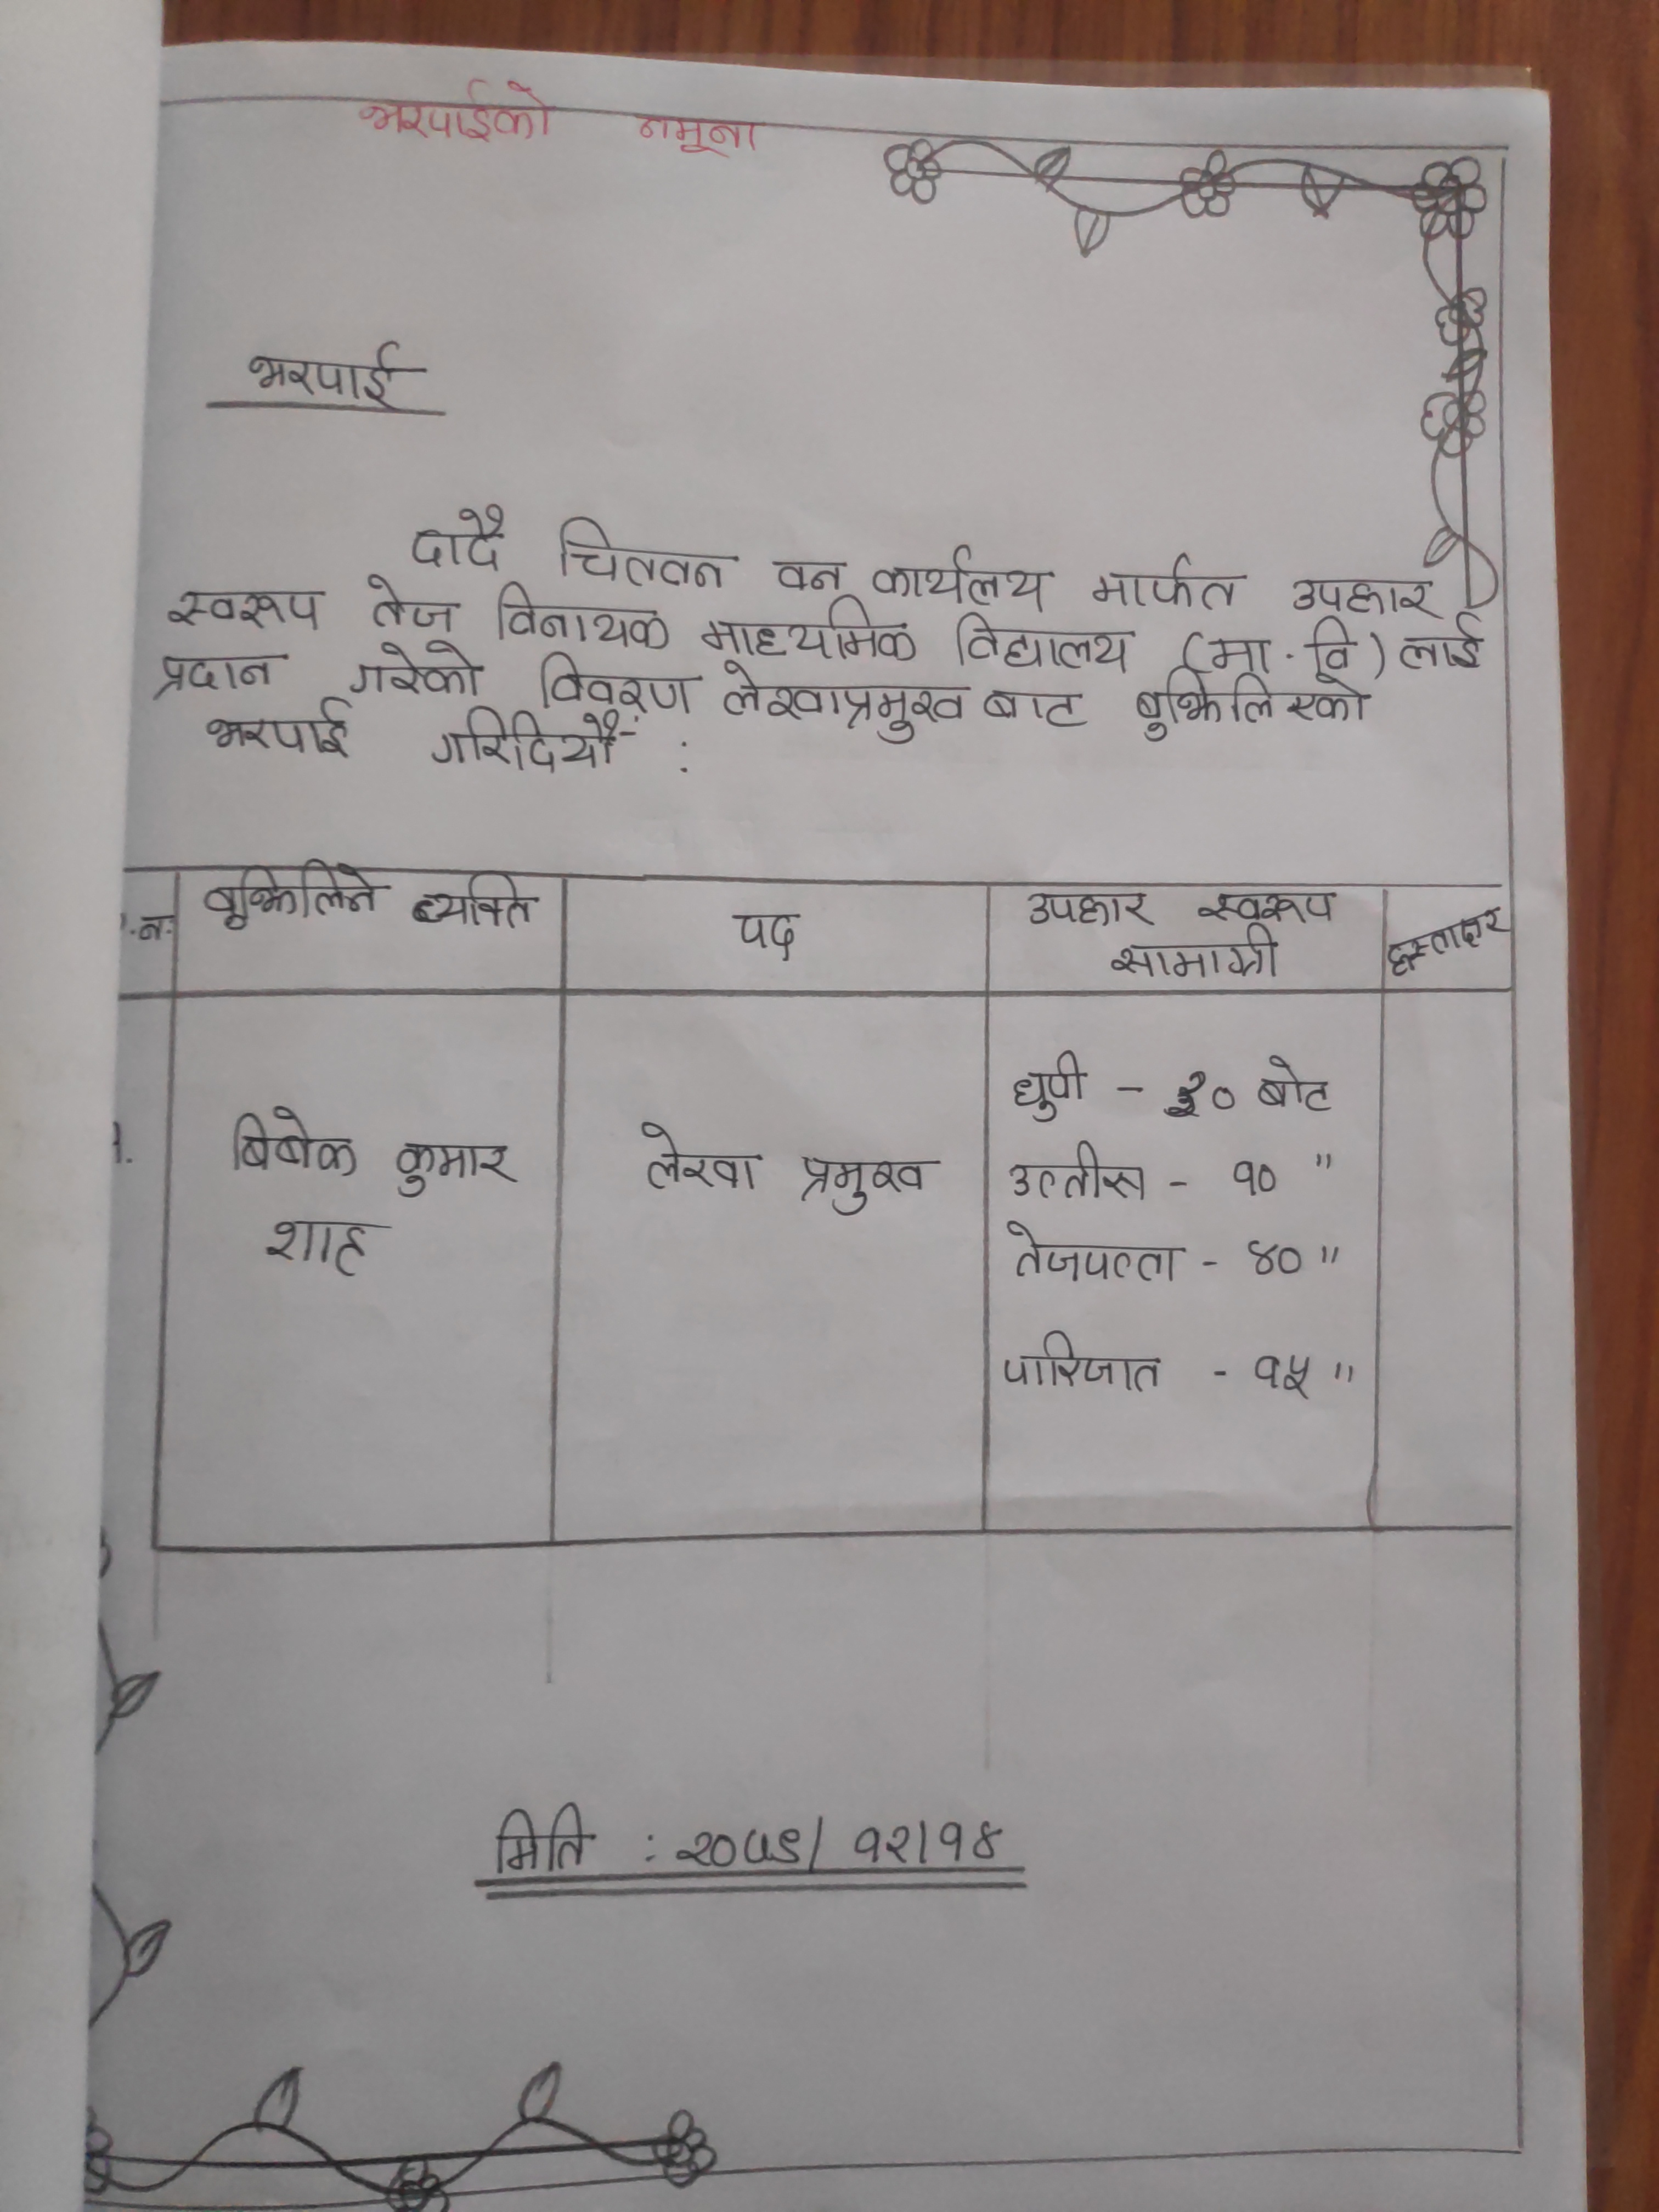 भरपाईको नमूना
भरपाई
दादै चितवन वन कार्यलय मार्फत उपहार
स्वरूप तेज विनायक माध्यमिक विद्यालय (मा.वि) लाई
प्रदान गरेको विवरण लेखाप्रमुख बाट बुझिलिएको
भरपाई गरिदियौं :
.न. बुझिलिने व्यक्ति पद उपहार स्वरूप हस्ताक्षर
सामाग्री
१. बिबेक कुमार लेखा प्रमुख
शाह
धुपी - ३० बोट
उत्तीस - १० "
तेजपत्ता - ४० "
पारिजात - १५ "
मिति : २०७९/१२/१४